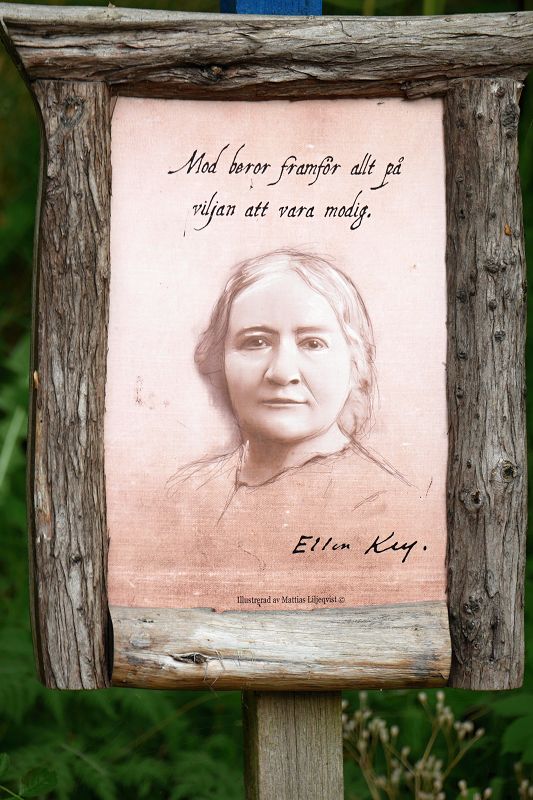 Mod beror framför allt på
viljan att vara modig.
Ellen Key.
Illustrerad av Mattias Liljeqvist ©